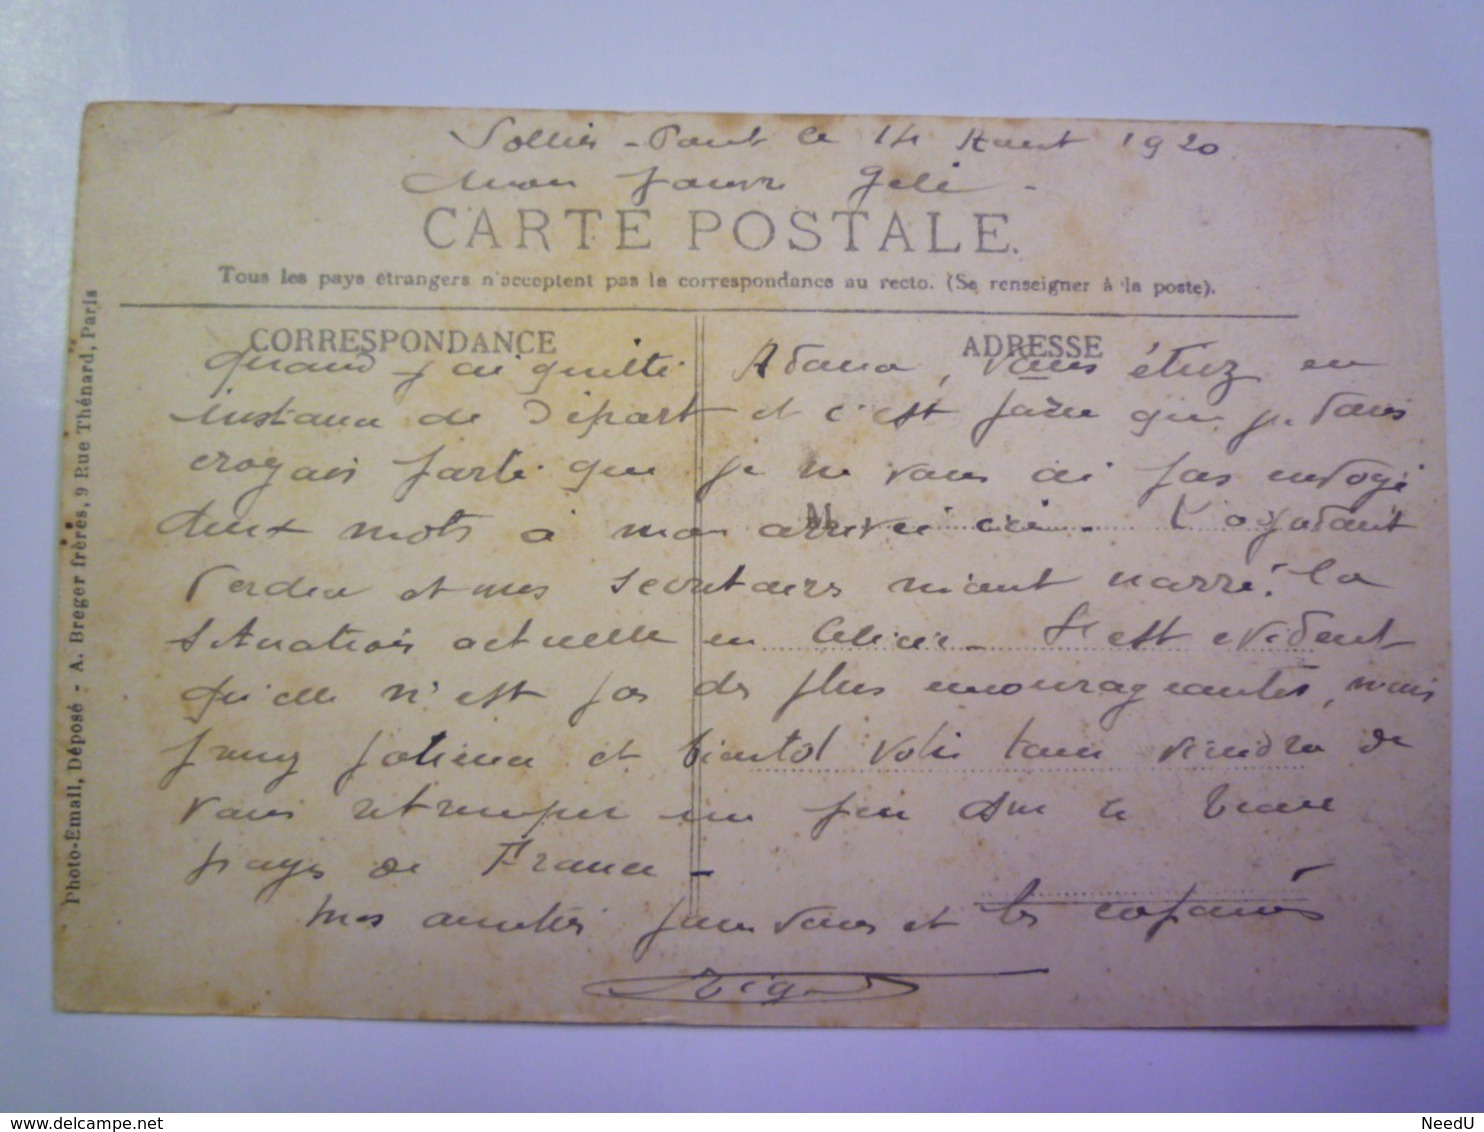 Sollies-Pont le 14 Aout 1920
Mon pauvre Geli -
CARTE POSTALE.
Tous les pays étrangers n'acceptent pas la correspondance au recto. (Se renseigner à la poste).
CORRESPONDANCE
ADRESSE
Quand j'ai quitté Adana, vous étiez en
instance de départ et c'est parce que je vous
croyais parti que je ne vous ai pas envoyé
deux mots à mon arrivée ici. L'adjudant
et mes secrétaires m'ont narré la
situation actuelle en Cilicie. Il est évident
qu'elle n'est pas des plus encourageantes, mais
patience et bientôt votre tour viendra de
vous retremper un peu sur le beau
pays de France -
Mes amitiés pour vous et les copains
M
Photo-Email, Déposé - A. Breger frères, 9 Rue Thénard, Paris
delcampe.net
NeedU